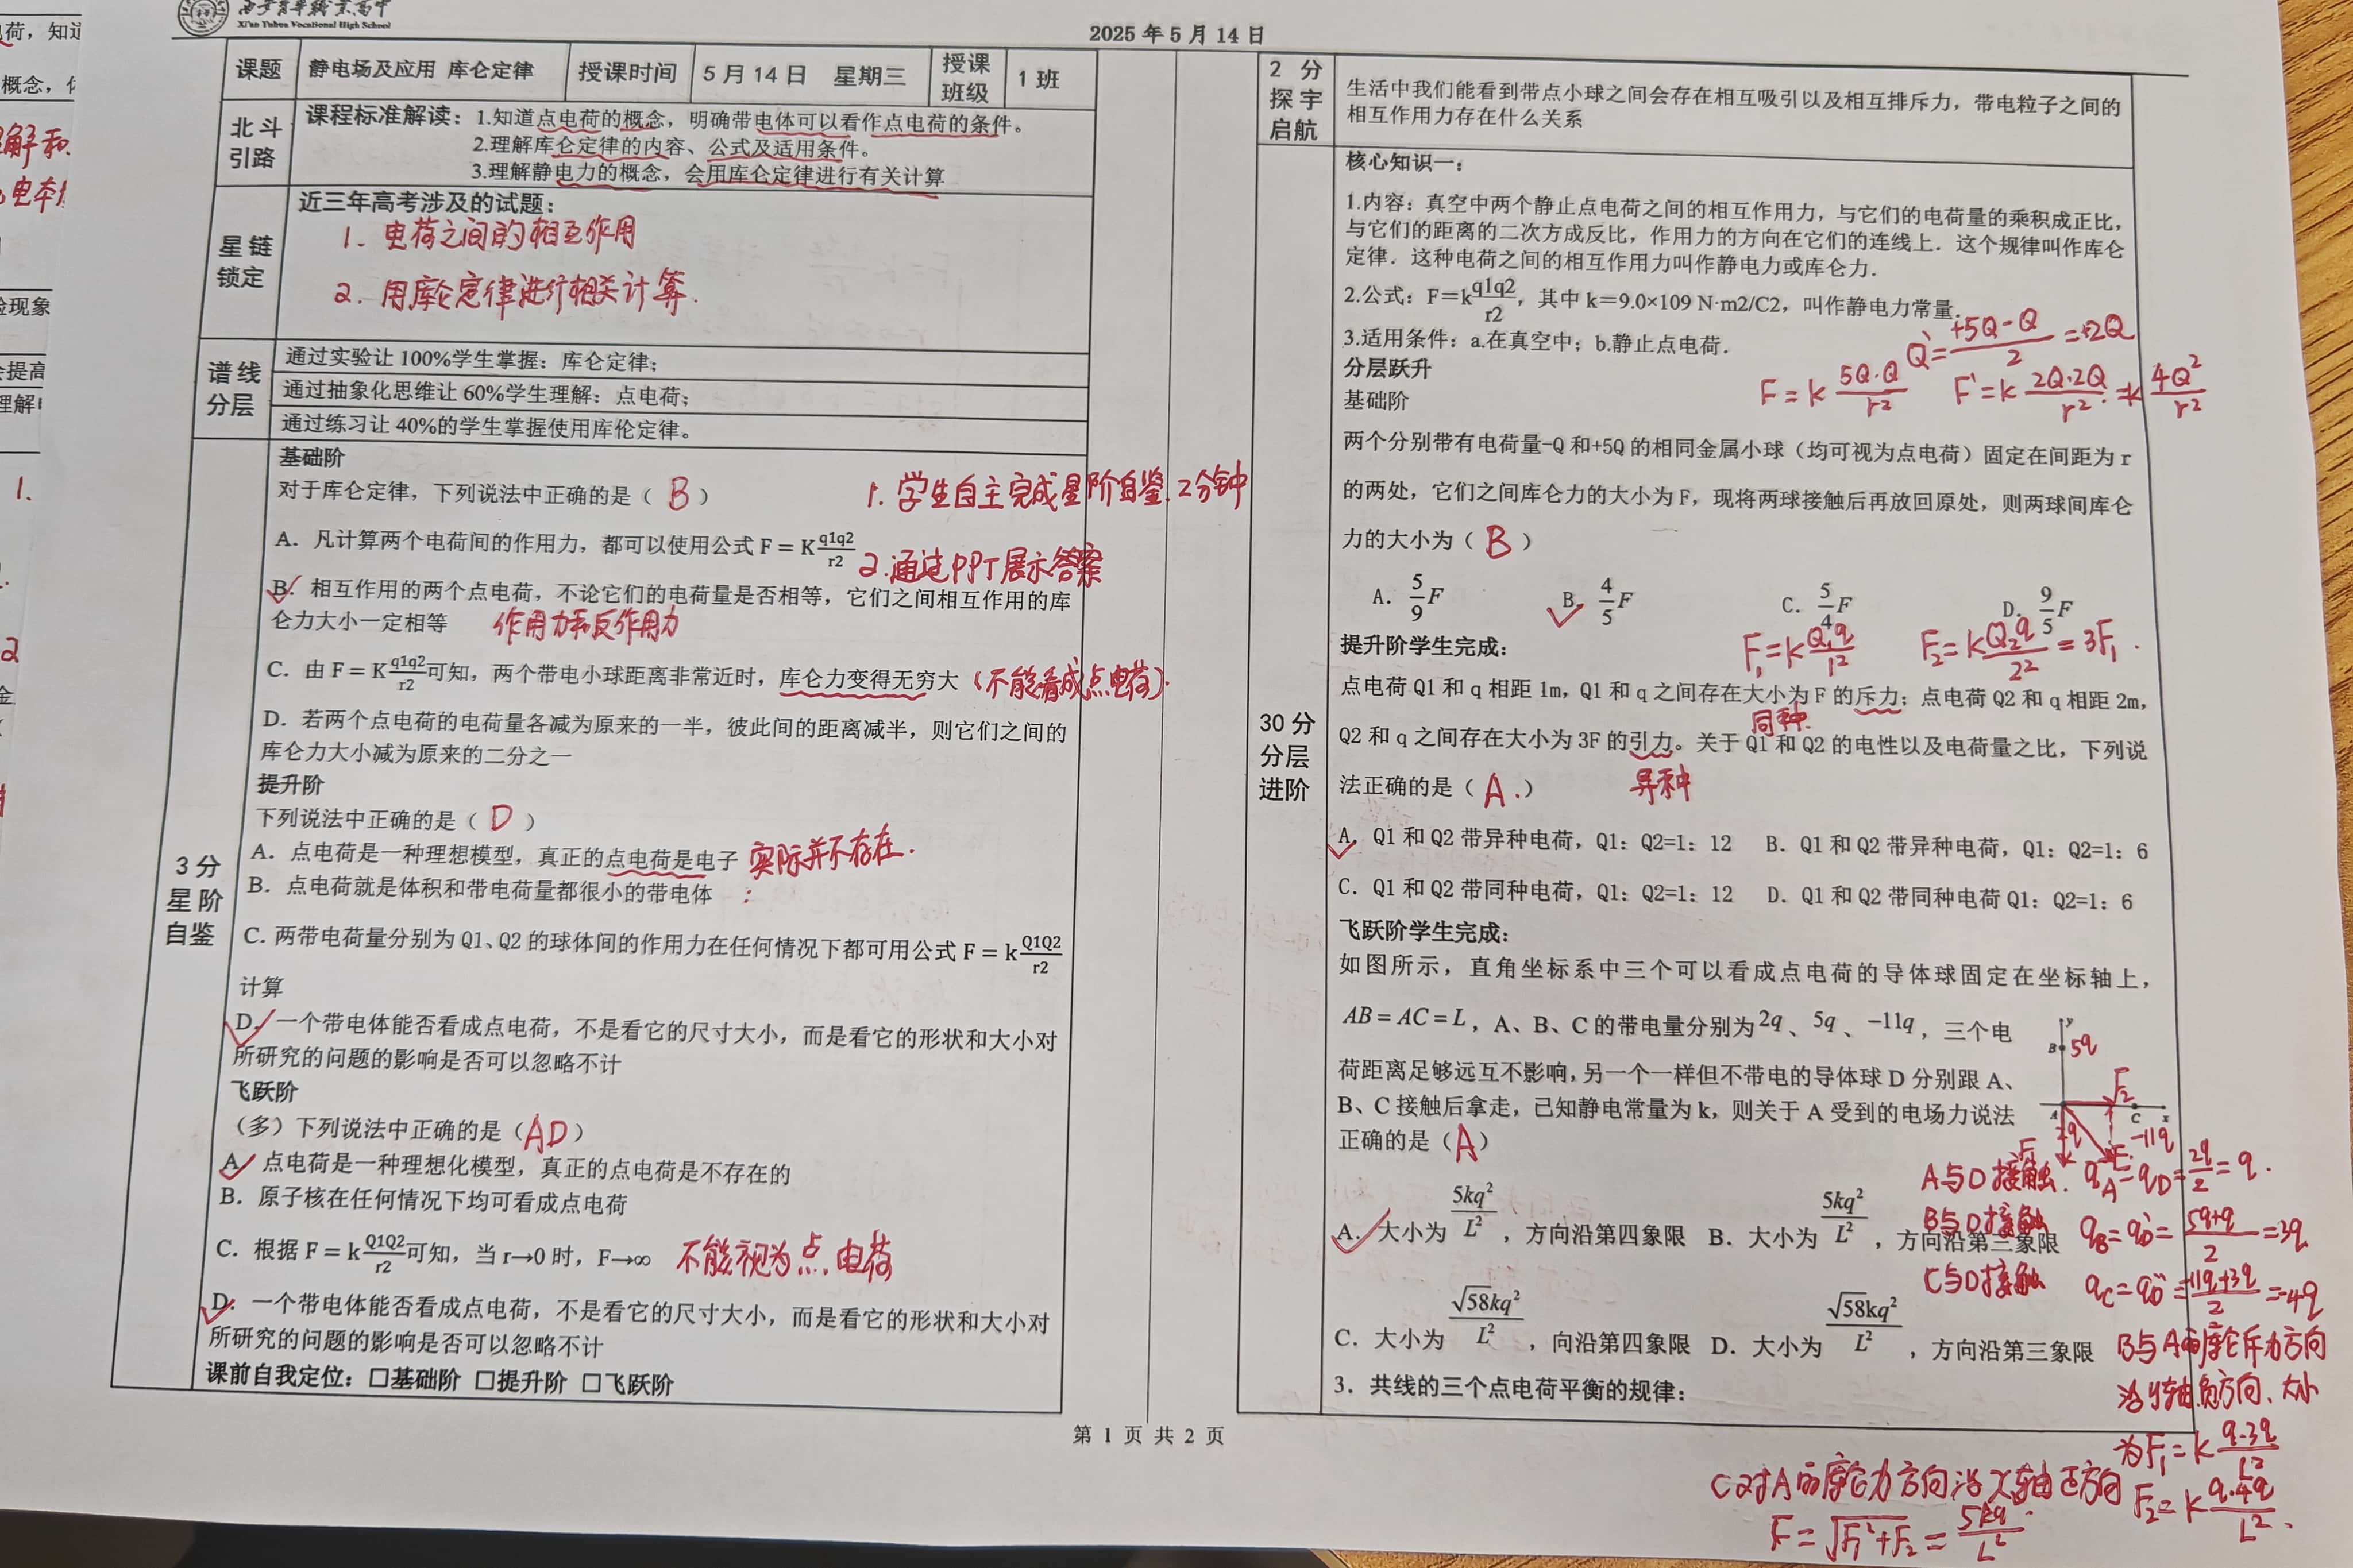 西安育华职业高中
Xi'an Yuhua Vocational High School
2025 年 5 月 14 日
课题 静电场及应用 库仑定律 授课时间 5 月 14 日 星期三 授课班级 1 班
北斗引路
课程标准解读：1.知道点电荷的概念，明确带电体可以看作点电荷的条件。
2.理解库仑定律的内容、公式及适用条件。
3.理解静电力的概念，会用库仑定律进行有关计算
星链锁定
近三年高考涉及的试题：
1. 电荷之间的相互作用
2. 用库仑定律进行相关计算.
谱线分层
通过实验让 100%学生掌握：库仑定律；
通过抽象化思维让 60%学生理解：点电荷；
通过练习让 40%的学生掌握使用库伦定律。
3 分
星阶
自鉴
基础阶
对于库仑定律，下列说法中正确的是（ B ）
1. 学生自主完成星阶自鉴. 2分钟
A. 凡计算两个电荷间的作用力，都可以使用公式 F = K q1q2/r2
2.通过PPT展示答案
B. 相互作用的两个点电荷，不论它们的电荷量是否相等，它们之间相互作用的库
仑力大小一定相等 作用力和反作用力
C. 由 F = K q1q2/r2 可知，两个带电小球距离非常近时，库仑力变得无穷大（不能看成点电荷）.
D. 若两个点电荷的电荷量各减为原来的一半，彼此间的距离减半，则它们之间的
库仑力大小减为原来的二分之一
提升阶
下列说法中正确的是（ D ）
A. 点电荷是一种理想模型，真正的点电荷是电子 实际并不存在.
B. 点电荷就是体积和带电荷量都很小的带电体
C. 两带电荷量分别为 Q1、Q2 的球体间的作用力在任何情况下都可用公式 F = k Q1Q2/r2
计算
D. 一个带电体能否看成点电荷，不是看它的尺寸大小，而是看它的形状和大小对
所研究的问题的影响是否可以忽略不计
飞跃阶
（多）下列说法中正确的是（AD）
A. 点电荷是一种理想化模型，真正的点电荷是不存在的
B. 原子核在任何情况下均可看成点电荷
C. 根据 F = k Q1Q2/r2 可知，当 r→0 时，F→∞ 不能视为点电荷
D. 一个带电体能否看成点电荷，不是看它的尺寸大小，而是看它的形状和大小对
所研究的问题的影响是否可以忽略不计
课前自我定位：□基础阶 □提升阶 □飞跃阶
2 分
探宇
启航
生活中我们能看到带点小球之间会存在相互吸引以及相互排斥力，带电粒子之间的
相互作用力存在什么关系
30 分
分层
进阶
核心知识一：
1.内容：真空中两个静止点电荷之间的相互作用力，与它们的电荷量的乘积成正比，
与它们的距离的二次方成反比，作用力的方向在它们的连线上．这个规律叫作库仑
定律．这种电荷之间的相互作用力叫作静电力或库仑力．
2.公式：F＝k q1q2/r2，其中 k＝9.0×109 N·m2/C2，叫作静电力常量．
3.适用条件：a.在真空中；b.静止点电荷．
Q' = (+5Q-Q)/2 = +2Q
分层跃升
F = k 5Q·Q/r² F' = k 2Q·2Q/r² = k 4Q²/r²
基础阶
两个分别带有电荷量-Q 和+5Q 的相同金属小球（均可视为点电荷）固定在间距为 r
的两处，它们之间库仑力的大小为 F，现将两球接触后再放回原处，则两球间库仑
力的大小为（ B ）
A. 5/9 F B. 4/5 F C. 5/4 F D. 9/5 F
提升阶学生完成：
F₁=k Q₁q/1² F₂=k Q₂q/2² = 3F₁.
点电荷 Q1 和 q 相距 1m，Q1 和 q 之间存在大小为 F 的斥力；点电荷 Q2 和 q 相距 2m，
同种.
Q2 和 q 之间存在大小为 3F 的引力。关于 Q1 和 Q2 的电性以及电荷量之比，下列说
法正确的是（ A. ） 异种
A. Q1 和 Q2 带异种电荷，Q1：Q2=1：12 B. Q1 和 Q2 带异种电荷，Q1：Q2=1：6
C. Q1 和 Q2 带同种电荷，Q1：Q2=1：12 D. Q1 和 Q2 带同种电荷 Q1：Q2=1：6
飞跃阶学生完成：
如图所示，直角坐标系中三个可以看成点电荷的导体球固定在坐标轴上，
AB = AC = L，A、B、C 的带电量分别为 2q、5q、−11q，三个电
荷距离足够远互不影响，另一个一样但不带电的导体球 D 分别跟 A、
B、C 接触后拿走，已知静电常量为 k，则关于 A 受到的电场力说法
正确的是（A）
y
B 5q
F₂
A C x
2q -11q
F₁ F
A与D接触. qA=qD=2q/2=q.
A. 大小为 5kq²/L²，方向沿第四象限 B. 大小为 5kq²/L²，方向沿第三象限
B与D接触 qB=qD'=(5q+q)/2=3q
C与D接触 qC=qD''=(-11q+3q)/2=-4q
C. 大小为 √58kq²/L²，向沿第四象限 D. 大小为 √58kq²/L²，方向沿第三象限
3. 共线的三个点电荷平衡的规律：
B与A的库仑斥力方向
沿y轴负方向、大小
为F₁=k q·3q/L²
C对A的库仑力方向沿x轴正方向 F₂=k q·4q/L².
F=√F₁²+F₂=5kq/L²
第 1 页 共 2 页